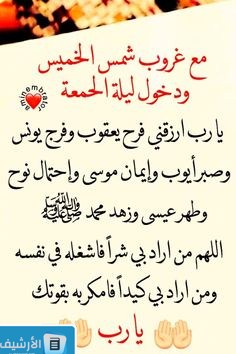 مع غروب شمس الخميس
ودخول ليلة الجمعة
aminembrator
يا رب ارزقني فرح يعقوب وفرج يونس
وصبر أيوب وإيمان موسى وإحتمال نوح
وطهر عيسى وزهد محمد ﷺ
اللهم من اراد بي شراً فاشغله في نفسه
ومن اراد بي كيداً فامكر به بقوتك
يا رب
الأرشيف